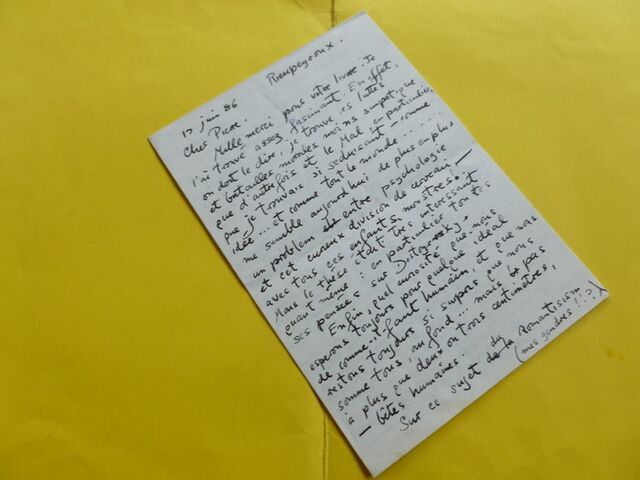 Rieupeyroux.
17 juin 86
Cher Pierre.
Mille merci pour votre livre. Je
l'ai trouvé assez fascinant. En effet,
on doit le dire, je trouve les luttes
et batailles morales moins sympatique
que d'autrefois et le Mal en particulier,
que je trouvais si seduisant — comme
idée... et comme tout le monde....
me semble aujourd'hui de plus en plus
un problem entre psychologie
et cet curieux division de cerveau —
avec tous ces enfants monstres!
Mais le thèse était très interessant
quand même: en particulier toutes
ses pensées sur Dostoyevsky.
Enfin, quel curiosité que nous
esperons toujours pour quelque ideal
de comme-il-faut humain, et que nous
restons toujours si supris que nous
somme tous, au fond... mais pas
à plus que deux ou trois centimètres,
— bêtes humaines.
Sur ce sujet du Romanticism
(mes gendres!!?!)